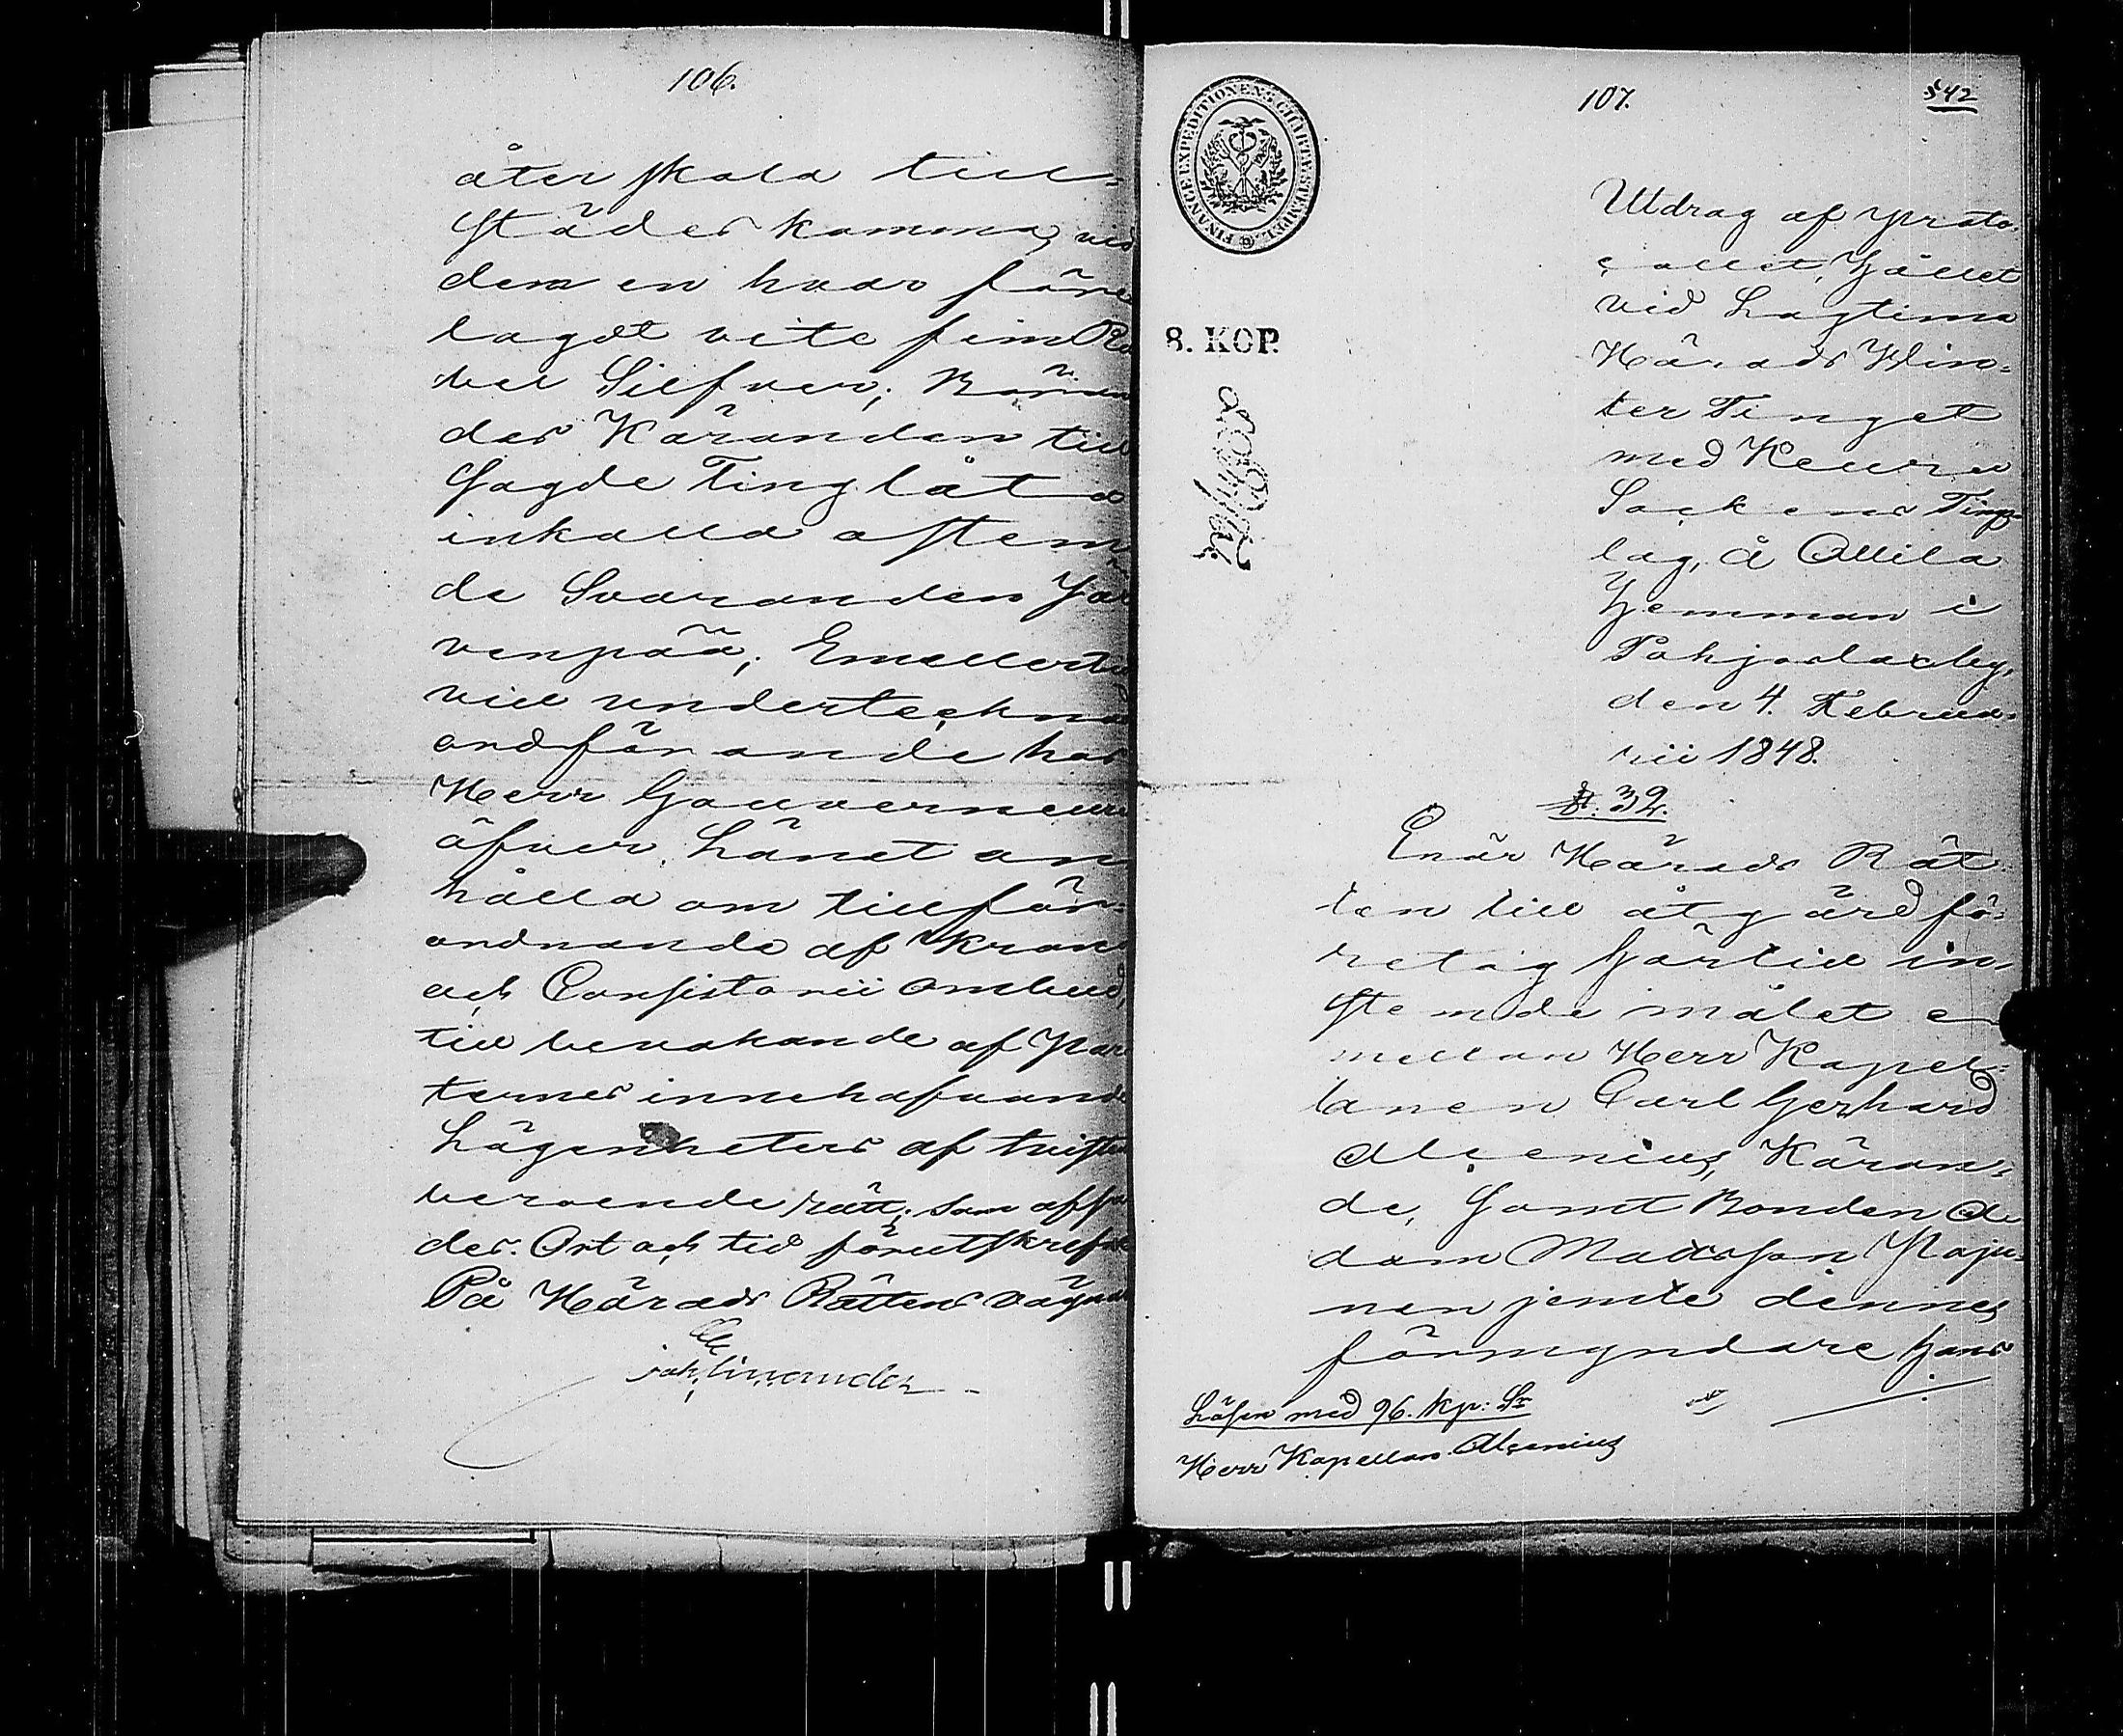 106.
åter skola till-
städes komma, vid
dem en hvar före
lagdt vite fem Ru
bel Silfver; Böran
des Käranden till
sagde Ting låta
inkalla aftem
de Svaranden Jär
venpää; Emellertid
vill undertecknad
ordförande hos
Herr Gouverneure
öfver Länet an
hålla om tillför-
ordnande af Krono
och Consistorii ombud,
till bevakande af Par
ternes innehafvande
Lägenheters af tvisten
beroende rätt; som afsa
des. Ort och tid förutskrefne
På Härads Rättens vägnar
Joh: Limander
107.
542
FINANCE EXPEDITIONENS CHARTÆ STEMPEL
8. KOP.
Utdrag af Proto-
collet, hållet
vid Lagtima
Härads Win-
ter Tinget
med Keuru
Sockens Tings-
lag, å Ollila
Hemman i
Pohjaslax by,
den 4. Februa-
rii 1848.
§. 32.
Enär Härads Rät
ten till åtgärd fö-
retog härtill in-
stemde målet e
mellan Herr Kapel-
lanen Carl Gerhard
Alcenius, Käran-
de, samt Bonden A
dam Matsson Paju-
nen jemte dennes
förmyndare Hans
Lösen med 96. kp: Sr
Herr Kapellan Alcenius